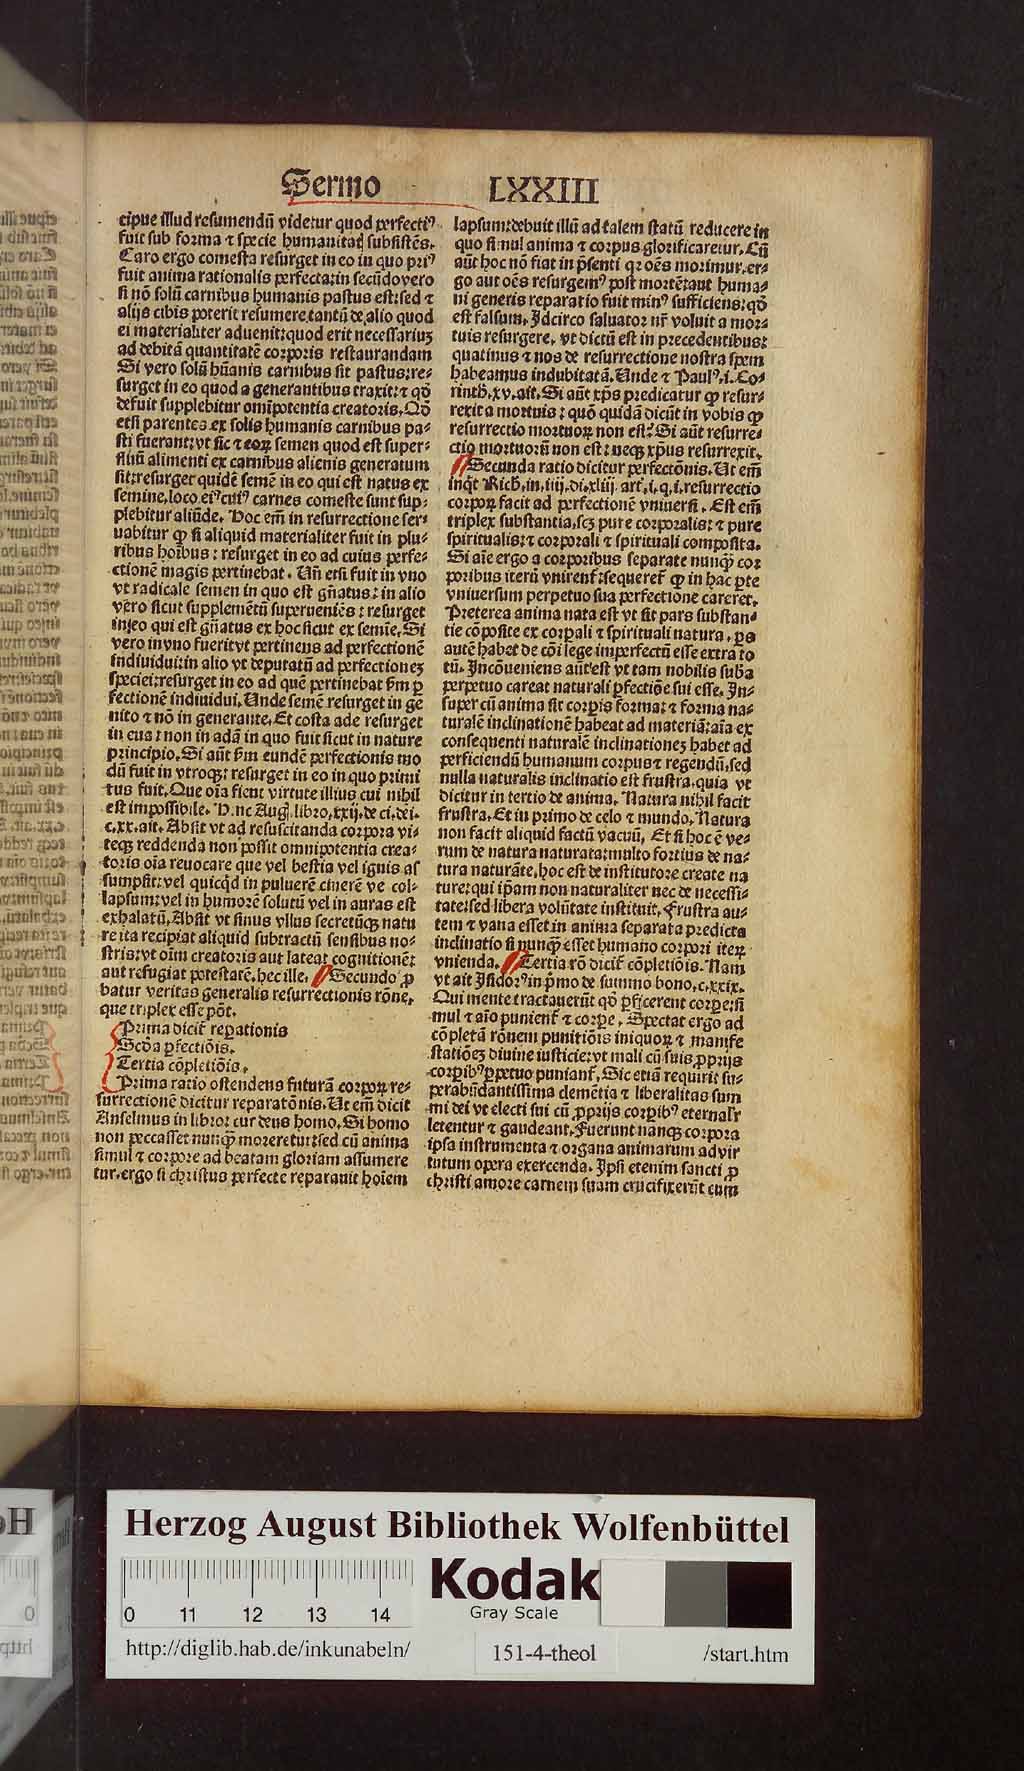 Sermo LXXIII
cipue illud resumendū videtur quod perfectiꝰ
fuit sub forma ⁊ specie humanitatis subsistēs.
Caro ergo comesta resurget in eo in quo priꝰ
fuit anima rationalis perfecta: in secūdo vero
si nō solū carnibus humanis pastus est: sed ⁊
alijs cibis poterit resumere tantū de alio quod
ei materialiter aduenit: quod erit necessariuꝫ
ad debitā quantitatē corporis restaurandam
Si vero solū hūanis carnibus sit pastus: re-
surget in eo quod a generantibus traxit: ⁊ qđ
defuit supplebitur omīpotentia creatoris. Qđ
etsi parentes ex solis humanis carnibus pa-
sti fuerant: vt sic ⁊ eoꝝ semen quod est super-
fluū alimenti ex carnibus alienis generatum
sit: resurget quidē semē in eo qui est natus ex
semine, loco eiꝰ cuiꝰ carnes comeste sunt sup-
plebitur aliūde. Hoc em̄ in resurrectione ser-
uabitur ꝙ si aliquid materialiter fuit in plu-
ribus hoībus: resurget in eo ad cuius perfe-
ctionē magis pertinebat. Uñ etsi fuit in vno
vt radicale semen in quo est gñatus: in alio
vero sicut supplemētū superueniēs: resurget
in eo qui est gñatus ex hoc sicut ex semīe. Si
vero in vno fuerit vt pertinens ad perfectionē
indiuidui: in alio vt deputatū ad perfectioneꝫ
speciei: resurget in eo ad quē pertinebat ẜm ꝑ
fectionē indiuidui. Unde semē resurget in ge
nito ⁊ nō in generante. Et costa ade resurget
in eua: non in adā in quo fuit sicut in nature
principio. Si aūt ẜm eundē perfectionis mo
dū fuit in vtroqꝫ: resurget in eo in quo primi
tus fuit. Que oīa fient virtute illius cui nihil
est impossibile. H.nc Aug. libro.xxij.de ci.dei.
c.xx.ait. Absit vt ad resuscitanda corpora vi-
teqꝫ reddenda non possit omnipotentia crea-
toris oīa reuocare que vel bestia vel ignis as
sumpsit: vel quicqd in puluerē cinerē ve col-
lapsum: vel in humorē solutū vel in auras est
exhalatū. Absit vt sinus vllus secretūqꝫ natu
re ita recipiat aliquid subtractū sensibus no-
stris: vt oīm creatoris aut lateat cognitionē:
aut refugiat potestatē. hec ille. Secundo ꝓ
batur veritas generalis resurrectionis rōne,
que triplex esse pōt.
Prima dicit̄ reꝑationis
Scđa ꝑfectiōis.
Tertia cōpletiōis.
Prima ratio ostendens futurā corpoꝝ re-
surrectionē dicitur reparatōnis. Ut em̄ dicit
Anselmus in libro: cur deus homo. Si homo
non peccasset nunꝙ̄ moreretur: sed cū anima
simul ⁊ corpore ad beatam gloriam assumere
tur. ergo si christus perfecte reparauit hoīem
lapsum: debuit illū ad talem statū reducere in
quo simul anima ⁊ corpus glorificaretur. Cū
aūt hoc nō fiat in p̄senti qꝛ oēs morimur. er-
go aut oēs resurgemꝰ post mortē: aut huma-
ni generis reparatio fuit minꝰ sufficiens: qđ
est falsum. Idcirco saluator nr̄ voluit a mor-
tuis resurgere, vt dictū est in precedentibus:
quatinus ⁊ nos de resurrectione nostra spem
habeamus indubitatā. Unde ⁊ Paulꝰ.i.Co-
rinth̄.xv.ait. Si aūt xp̄s predicatur ꝙ resur-
rexit a mortuis: quō quidā dicūt in vobis ꝙ
resurrectio mortuoꝝ non est? Si aūt resurre-
ctio mortuorū non est: neqꝫ xp̄us resurrexit.
Secunda ratio dicitur perfectōnis. Ut em̄
inqt Rich̄.in.iiij.di.xliij.art.i.q.i.resurrectio
corpoꝝ facit ad perfectionē vniuersi. Est em̄
triplex substantia, scꝫ pure corporalis: ⁊ pure
spiritualis: ⁊ corporali ⁊ spirituali composita.
Si aīe ergo a corporibus separate nunꝙ̄ cor
poribus iterū vnirent̄: sequeret̄ ꝙ in hac ꝑte
vniuersum perpetuo sua perfectione careret.
Preterea anima nata est vt sit pars substan-
tie cōposite ex corꝑali ⁊ spirituali natura. ꝑs
autē habet de cōi lege imperfectū esse extra to
tū. Incōueniens aūt est vt tam nobilis sub̄a
perpetuo careat naturali ꝑfectiōe sui esse. In-
super cū anima sit corꝑis forma: ⁊ forma na-
turalē inclinationē habeat ad materiā: aīa ex
consequenti naturalē inclinationeꝫ habet ad
perficiendū humanum corpus ⁊ regendū, sed
nulla naturalis inclinatio est frustra. quia vt
dicitur in tertio de anima. Natura nihil facit
frustra. Et in primo de celo ⁊ mundo. Natura
non facit aliquid factū vacuū. Et si hoc ē ve-
rum de natura naturata: multo fortius de na-
tura naturāte, hoc est de institutore create na
ture: qui ip̄am non naturaliter nec de necessi-
tate: sed libera volūtate instituit. Frustra au-
tem ⁊ vana esset in anima separata predicta
inclinatio si nunꝙ̄ esset humano corpori iteꝝ
vnienda. Tertia rō dicit̄ cōpletiōis. Nam
vt ait Isidorꝰ in p̄mo de summo bono.c.xxix.
Qui mente tractauerūt qđ ꝑficerent corꝑe: si
mul ⁊ aīo punient̄ ⁊ corꝑe. Spectat ergo ad
cōpletā rōnem punitiōis iniquoꝝ ⁊ manife
stationeꝫ diuine iusticie: vt mali cū suis ꝓprijs
corꝑibꝰ ꝑpetuo puniant̄. Sic etiā requirit su-
perabūdantissima clemētia ⁊ liberalitas sum
mi dei vt electi sui cū ꝓprijs corꝑibꝰ eternalr̄
letentur ⁊ gaudeant. Fuerunt nanqꝫ corpora
ipsa instrumenta ⁊ organa animarum ad vir
tutum opera exercenda. Ipsi etenim sancti ꝓ
christi amore carnem suam crucifixerūt cum
Herzog August Bibliothek Wolfenbüttel
0 11 12 13 14
Kodak
Gray Scale
http://diglib.hab.de/inkunabeln/ 151-4-theol /start.htm